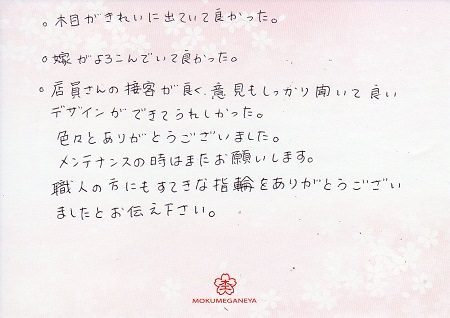 。木目がきれいに出ていて良かった。
。嫁がよろこんでいて良かった。
。店員さんの接客が良く、意見もしっかり聞いて良い
デザインができてうれしかった。
色々とありがとうございました。
メンテナンスの時はまたお願いします。
職人の方にもすてきな指輪をありがとうござい
ましたとお伝え下さい。
MOKUMEGANEYA